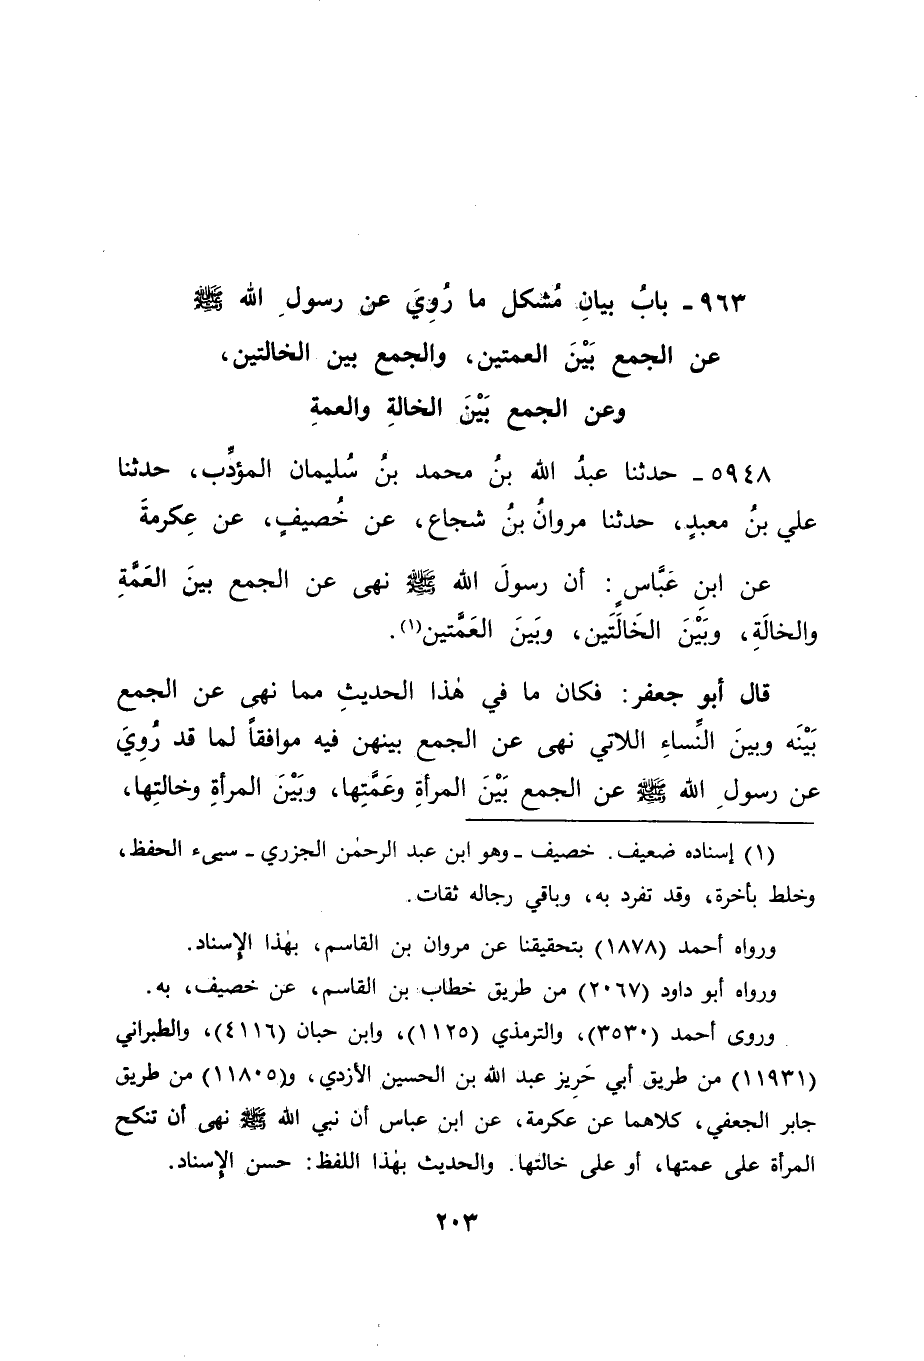 ٩٦٣ـ بابُ بيانِ مُشكل ما رُوِيَ عن رسولِ الله ﷺ
عن الجمع بَيْنَ العمتين، والجمع بين الخالتين،
وعن الجمع بَيْنَ الخالةِ والعمةِ
٥٩٤٨ـ حدثنا عبدُ الله بنُ محمد بنُ سُليمان المؤدِّب، حدثنا
علي بنُ معبدٍ، حدثنا مروانُ بنُ شجاع، عن خُصيفٍ، عن عِكرمةَ
عن ابنِ عَبَّاسٍ: أن رسولَ الله ﷺ نهى عن الجمع بينَ العَمَّةِ
والخالَةِ، وبَيْنَ الخَالَتَين، وبَينَ العَمَّتين(١).
قال أبو جعفر: فكان ما في هٰذا الحديثِ مما نهى عن الجمع
بَيْنَه وبينَ النِّساءِ اللاتي نهى عن الجمع بينهن فيه موافقاً لما قد رُوِيَ
عن رسولِ الله ﷺ عن الجمع بَيْنَ المرأةِ وعَمَّتِها، وبَيْنَ المرأةِ وخالتِها،
(١) إسناده ضعيف. خصيف ـ وهو ابن عبد الرحمٰن الجزري ـ سيىء الحفظ،
وخلط بأخرة، وقد تفرد به، وباقي رجاله ثقات.
ورواه أحمد (١٨٧٨) بتحقيقنا عن مروان بن القاسم، بهٰذا الإسناد.
ورواه أبو داود (٢٠٦٧) من طريق خطاب بن القاسم، عن خصيف، به.
وروى أحمد (٣٥٣٠)، والترمذي (١١٢٥)، وابن حبان (٤١١٦)، والطبراني
(١١٩٣١) من طريق أبي حَرِيز عبد الله بن الحسين الأزدي، و(١١٨٠٥) من طريق
جابر الجعفي، كلاهما عن عكرمة، عن ابن عباس أن نبي الله ﷺ نهى أن تنكح
المرأة على عمتها، أو على خالتها. والحديث بهٰذا اللفظ: حسن الإسناد.
٢٠٣